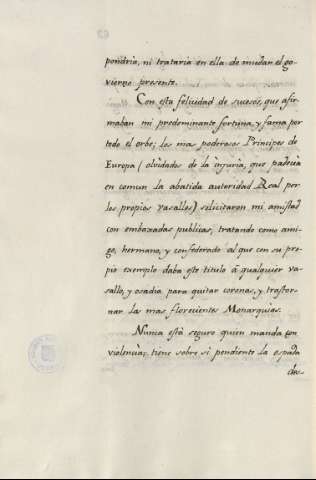 pondria, ni trataria en ella de mudar el go-
vierno presente.
Con esta felicidad de sucesos, que afir-
maban mi predominante fortuna, y fama por
todo el orbe; los mas poderosos Principes de
Europa (olvidados de la injuria, que padecia
en comun la abatida autoridad Real por
los propios vasallos) solicitaron mi amistad
con embaxadas publicas, tratando como ami-
go, hermano, y confederado al que con su pro-
pio exemplo daba este titulo á qualquier va-
sallo, y osadia para quitar coronas, y trastor-
nar las mas florecientes Monarquias.
Nunca está seguro quien manda con
violencia; tiene sobre si pendiente la espada